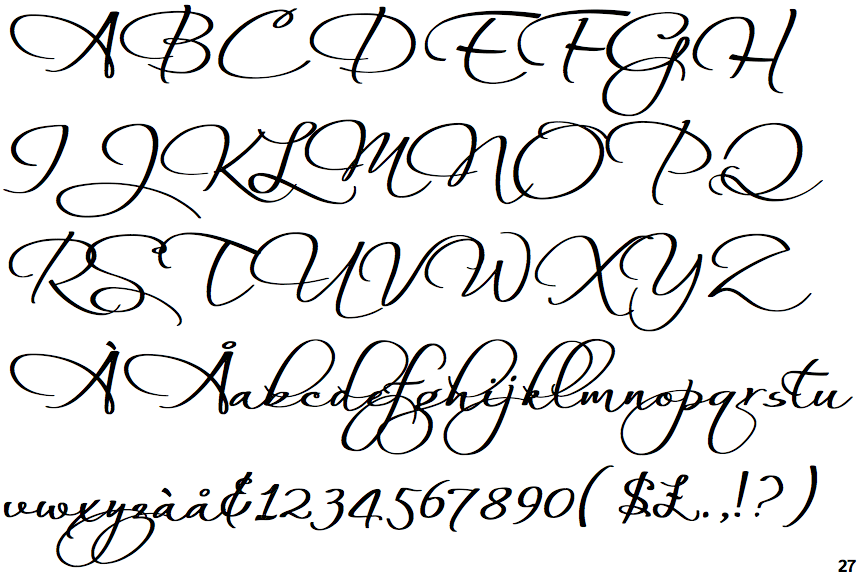 ABCDEFGH
IJKLMNOPQ
RSTUVWXYZ
ÀÅabcdefghijklmnopqrstu
vwxyzàå¢1234567890($£.,!?)
27